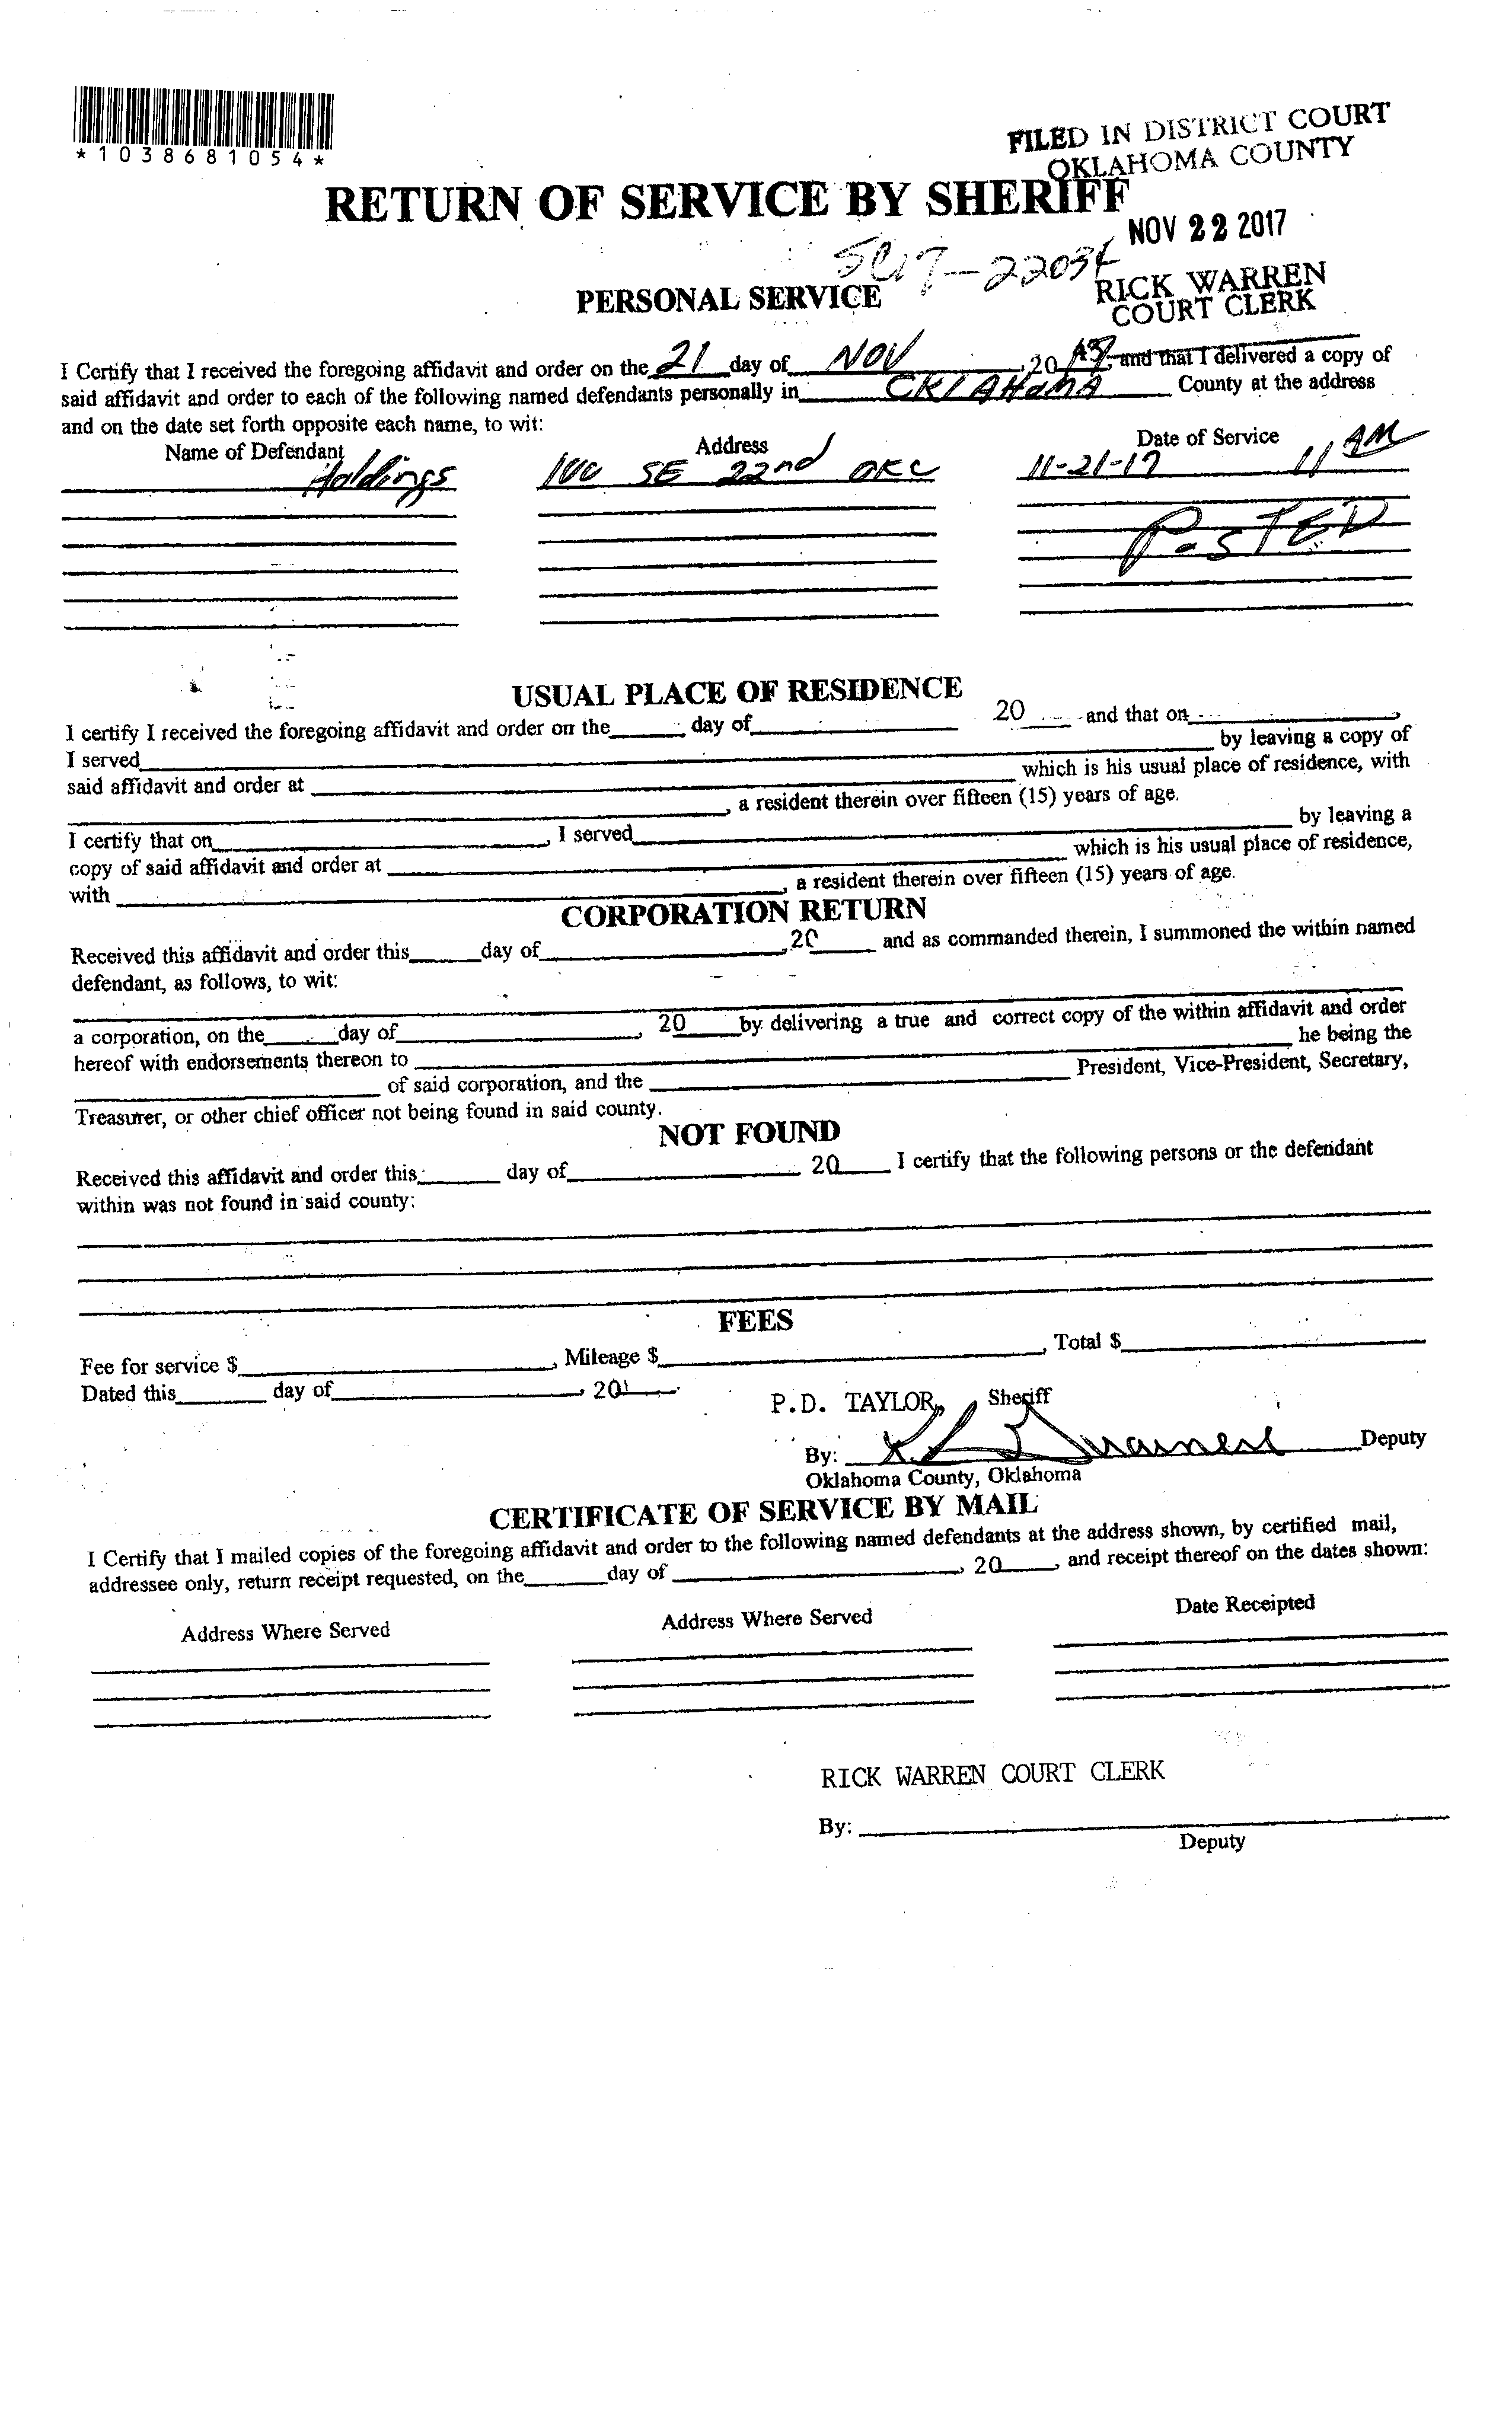 *1038681054*
FILED IN DISTRICT COURT
OKLAHOMA COUNTY
RETURN OF SERVICE BY SHERIFF
NOV 22 2017
PERSONAL SERVICE
RICK WARREN
COURT CLERK
I Certify that I received the foregoing affidavit and order on the 21 day of NOV, 20 and that I delivered a copy of
said affidavit and order to each of the following named defendants personally in OKLAHOMA County at the address
and on the date set forth opposite each name, to wit:
Name of Defendant Address Date of Service
Holdings 100 SE 22nd OKC 11-21-17 11 AM
POSTED
USUAL PLACE OF RESIDENCE
I certify I received the foregoing affidavit and order on the day of 20 and that on
I served by leaving a copy of
said affidavit and order at which is his usual place of residence, with
, a resident therein over fifteen (15) years of age.
I certify that on , I served by leaving a
copy of said affidavit and order at which is his usual place of residence,
with , a resident therein over fifteen (15) years of age.
CORPORATION RETURN
Received this affidavit and order this day of , 20 and as commanded therein, I summoned the within named
defendant, as follows, to wit:
a corporation, on the day of , 20 by delivering a true and correct copy of the within affidavit and order
hereof with endorsements thereon to he being the
of said corporation, and the President, Vice-President, Secretary,
Treasurer, or other chief officer not being found in said county.
NOT FOUND
Received this affidavit and order this day of 20 I certify that the following persons or the defendant
within was not found in said county:
FEES
Fee for service $ , Mileage $ , Total $
Dated this day of , 20
P.D. TAYLOR, Sheriff
By: Deputy
Oklahoma County, Oklahoma
CERTIFICATE OF SERVICE BY MAIL
I Certify that I mailed copies of the foregoing affidavit and order to the following named defendants at the address shown, by certified mail,
addressee only, return receipt requested, on the day of , 20 , and receipt thereof on the dates shown:
Address Where Served Address Where Served Date Receipted
RICK WARREN COURT CLERK
By:
Deputy